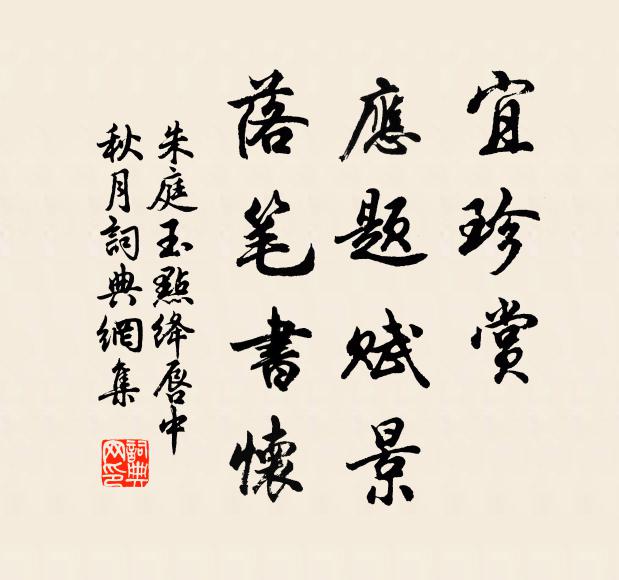 宜珍賞
應題賦景
落笔書懷
朱庭玉點絳唇中
秋月詞典網集
詞典网印